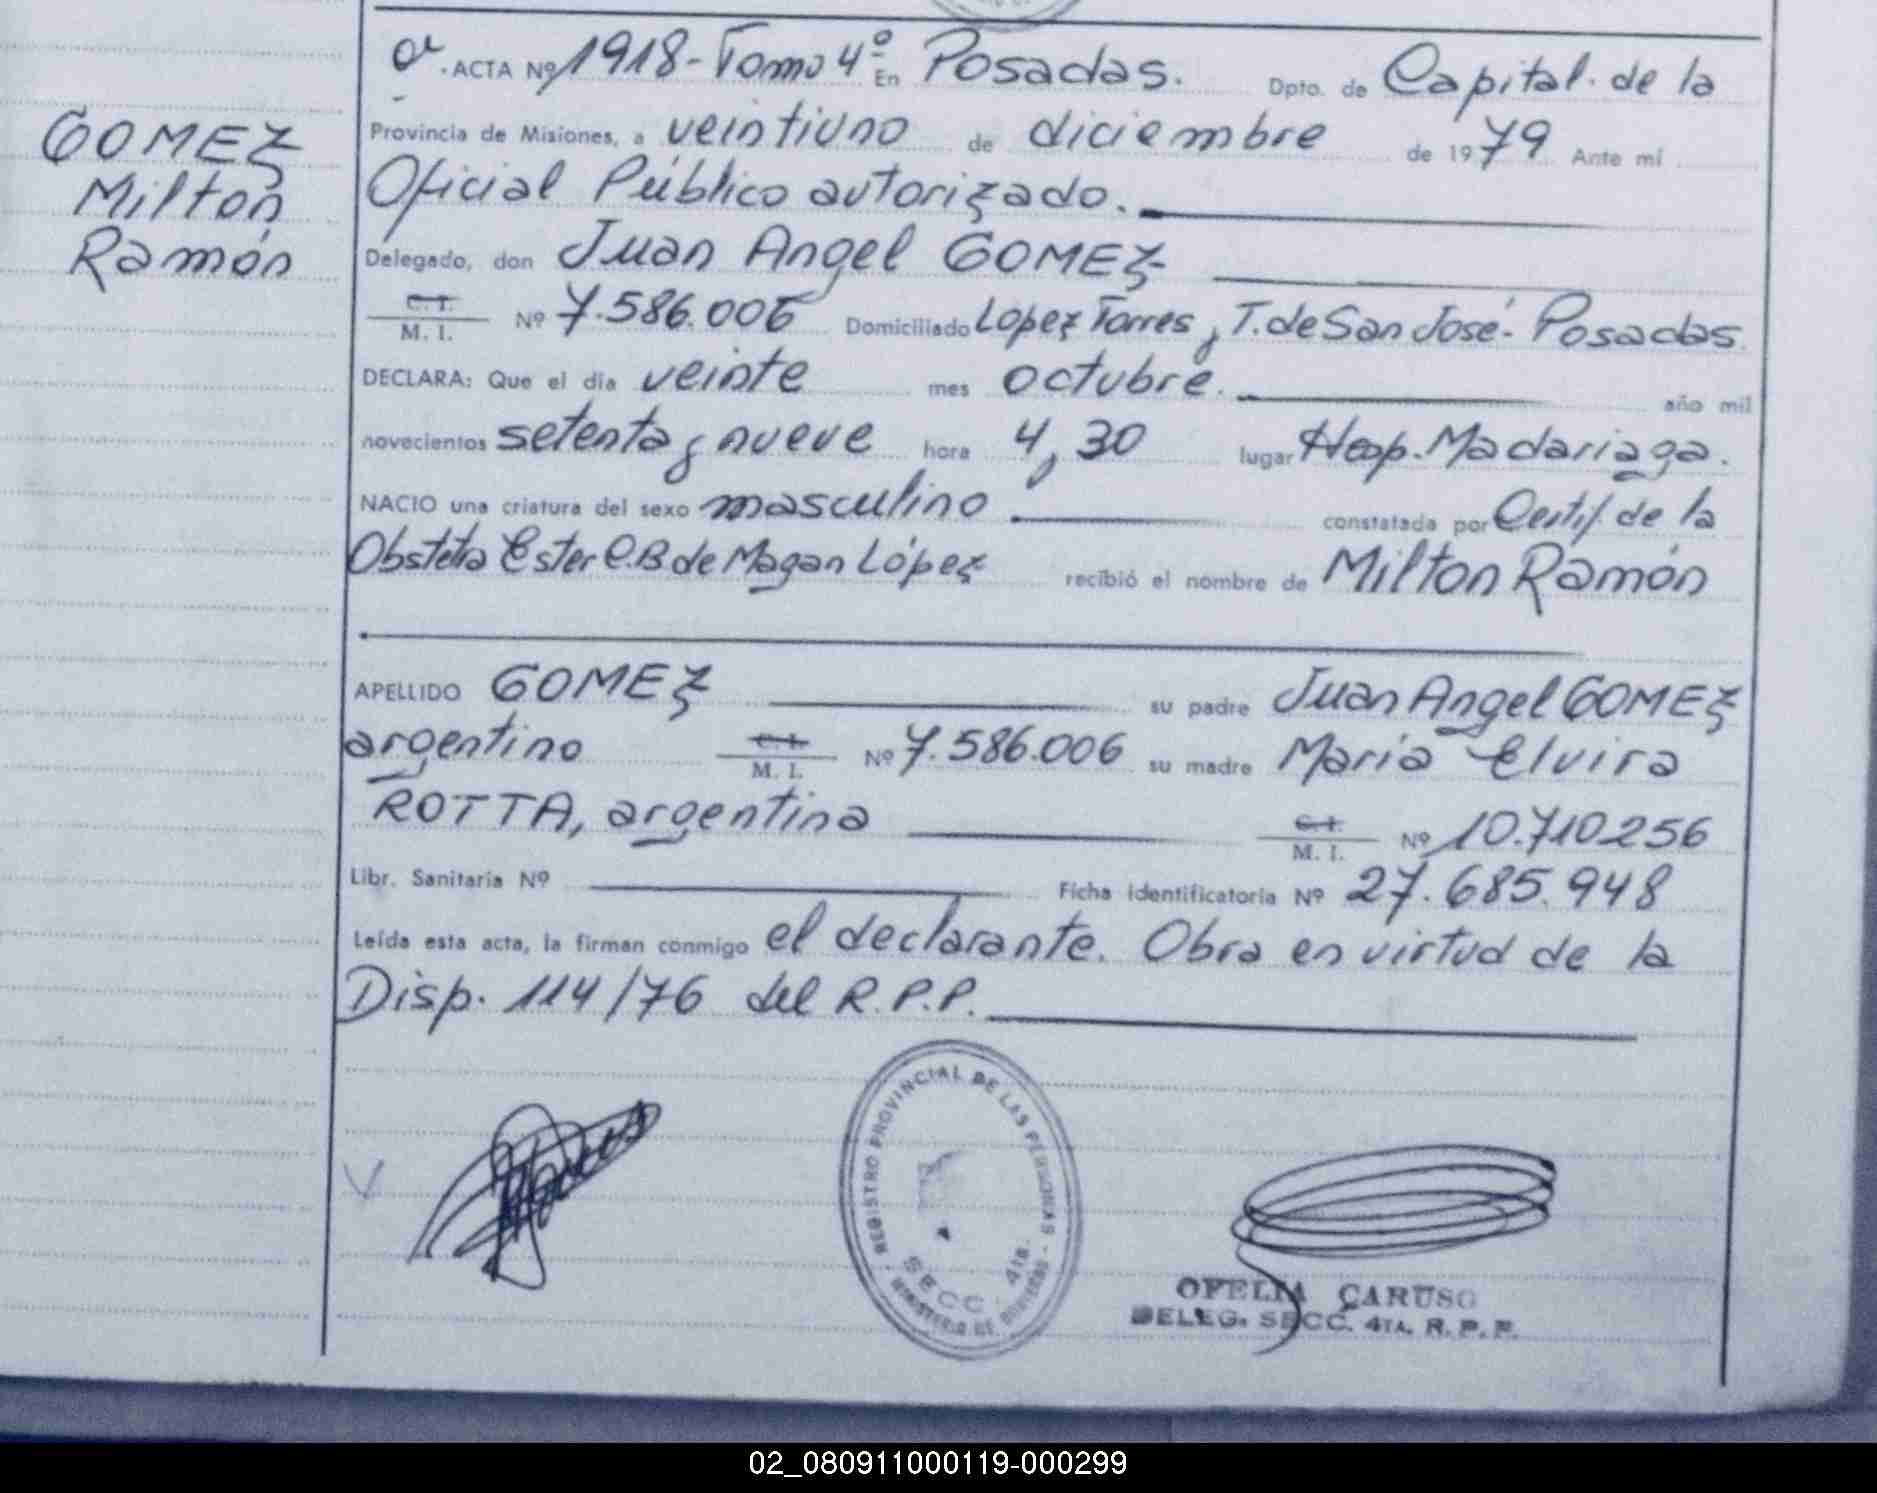 ACTA Nº 1918-Tomo 4º En Posadas. Dpto. de Capital. de la
GOMEZ
Milton
Ramón
Provincia de Misiones, a veintiuno de diciembre de 1979 Ante mí
Oficial Público autorizado.
Delegado, don Juan Angel GOMEZ
C. I.
M. I. Nº 7.586.006 Domiciliado Lopez Torres y T. de San José - Posadas.
DECLARA: Que el día veinte mes octubre. año mil
novecientos setenta y nueve hora 4,30 lugar Hosp. Madariaga.
NACIO una criatura del sexo masculino constatada por Certif. de la
Obstetra Ester C.B de Magan López recibió el nombre de Milton Ramón
APELLIDO GOMEZ su padre Juan Angel GOMEZ
argentino C. I. M. I. Nº 7.586.006 su madre María Elvira
ROTTA, argentina C. I. M. I. Nº 10.710256
Libr. Sanitaria Nº Ficha identificatoria Nº 27.685.948
Leída esta acta, la firman conmigo el declarante. Obra en virtud de la
Disp. 114/76 del R.P.P.
REGISTRO PROVINCIAL DE LAS PERSONAS - MINISTERIO DE GOBIERNO -
SECC. 4ta.
OFELIA CARUSO
DELEG. SECC. 4TA. R. P. P.
02_080911000119-000299